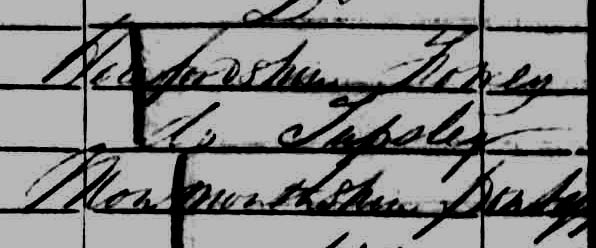 Do
Herefordshire Fowey
do Tupsley
Monmouthshire